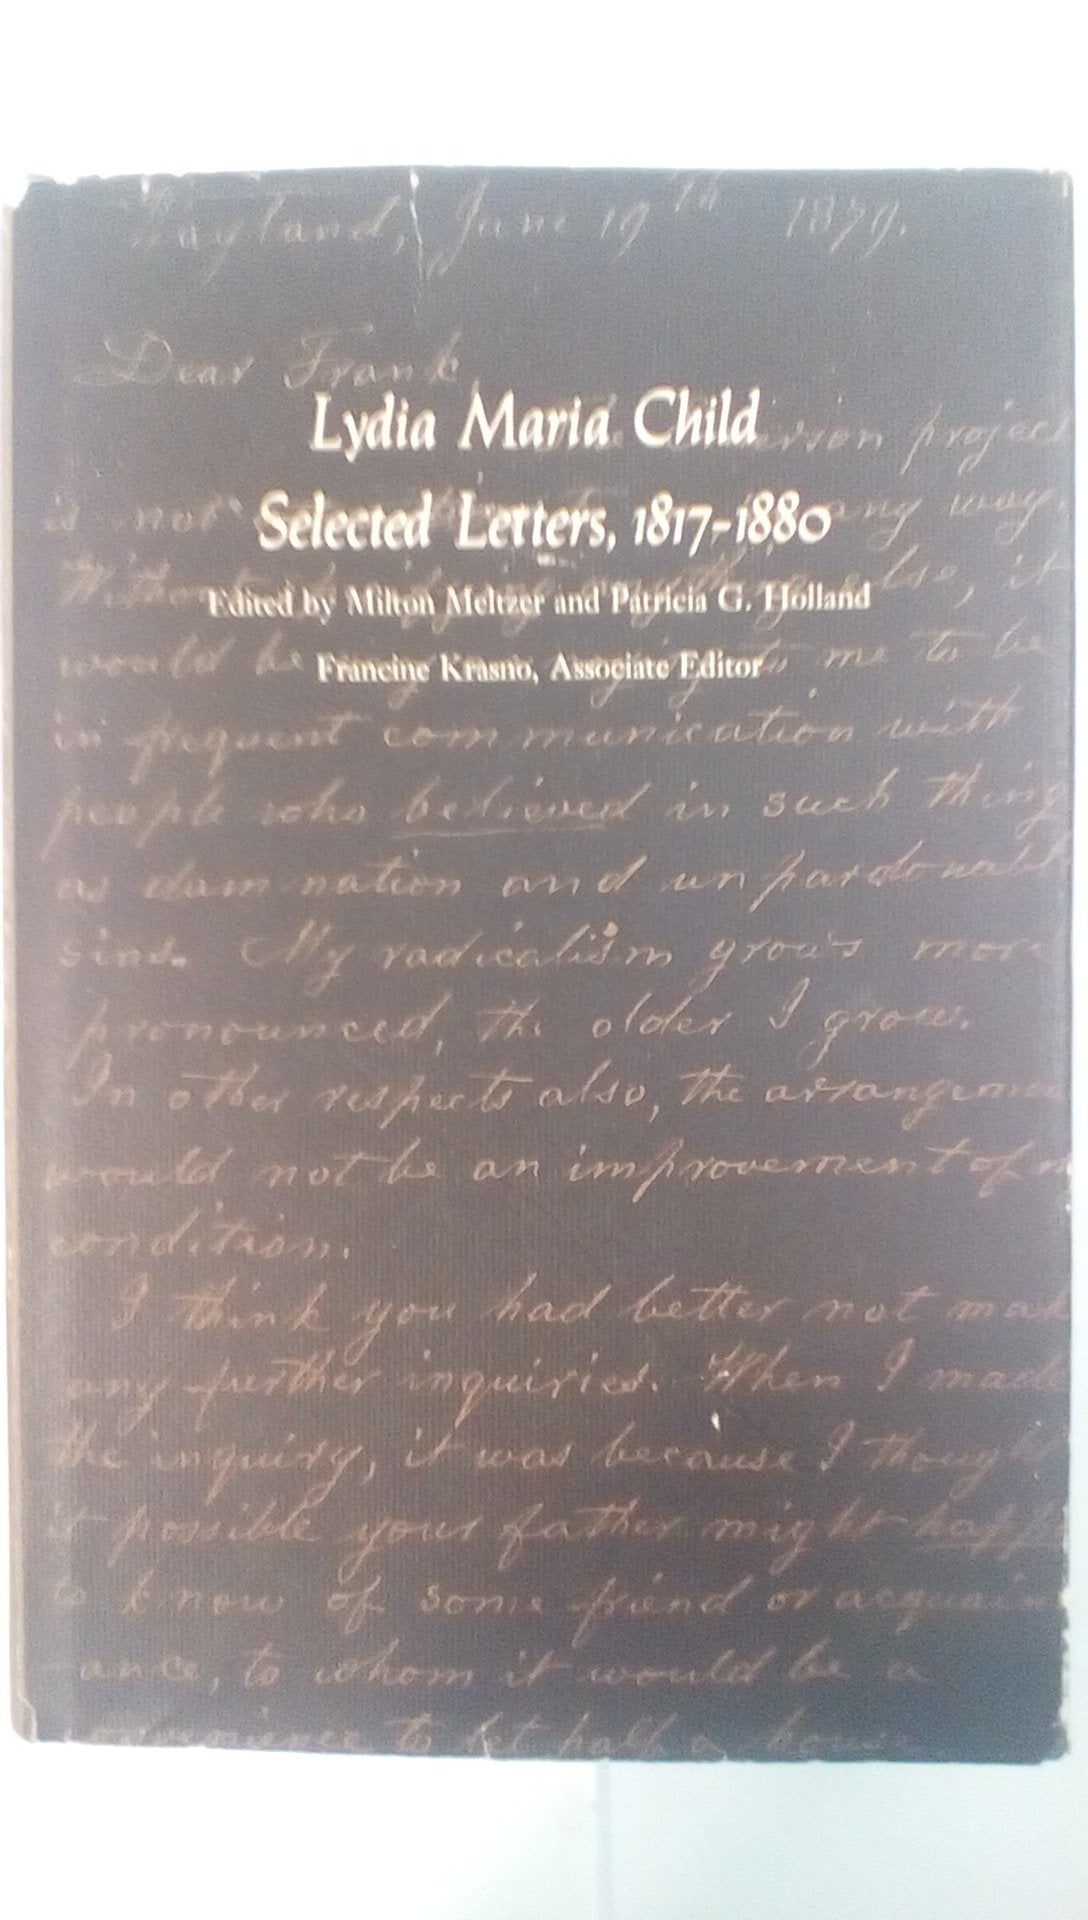 Wayland, June 19th 1879.
Dear Frank
Lydia Maria Child
erson project
is not any way.
Selected Letters, 1817-1880
else, it
Edited by Milton Meltzer and Patricia G. Holland
would be to me to be
Francine Krasno, Associate Editor
in frequent communication with
people who believed in such thing
as damnation and unpardonabl
sins. My radicalism grows more
pronounced, the older I grow.
In other respects also, the arrangemen
would not be an improvement of m
condition.
I think you had better not mak
any further inquiries. When I made
the inquiry, it was because I though
it possible your father might happ
to know of some friend or acquain
ance, to whom it would be a
convenience to let half a house